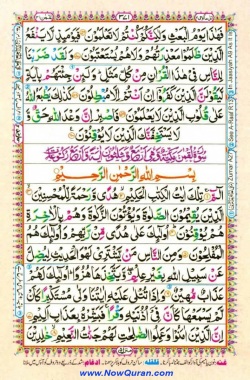 فَهٰذَا يَوْمُ الْبَعْثِ وَلٰكِنَّكُمْ كُنْتُمْ لَا تَعْلَمُوْنَ فَيَوْمَئِذٍ لَّا يَنْفَعُ
الَّذِيْنَ ظَلَمُوْا مَعْذِرَتُهُمْ وَلَا هُمْ يُسْتَعْتَبُوْنَ وَلَقَدْ ضَرَبْنَا
لِلنَّاسِ فِيْ هٰذَا الْقُرْاٰنِ مِنْ كُلِّ مَثَلٍ وَلَئِنْ جِئْتَهُمْ بِاٰيَةٍ
لَّيَقُوْلَنَّ الَّذِيْنَ كَفَرُوْٓا اِنْ اَنْتُمْ اِلَّا مُبْطِلُوْنَ كَذٰلِكَ يَطْبَعُ اللّٰهُ
عَلٰى قُلُوْبِ الَّذِيْنَ لَا يَعْلَمُوْنَ فَاصْبِرْ اِنَّ وَعْدَ اللّٰهِ حَقٌّ وَّ
لَا يَسْتَخِفَّنَّكَ الَّذِيْنَ لَا يُوْقِنُوْنَ
بِسْمِ اللّٰهِ الرَّحْمٰنِ الرَّحِيْمِ
الٓمّٓ تِلْكَ اٰيٰتُ الْكِتٰبِ الْحَكِيْمِ هُدًى وَّرَحْمَةً لِّلْمُحْسِنِيْنَ
الَّذِيْنَ يُقِيْمُوْنَ الصَّلٰوةَ وَيُؤْتُوْنَ الزَّكٰوةَ وَهُمْ بِالْاٰخِرَةِ هُمْ
يُوْقِنُوْنَ اُولٰٓئِكَ عَلٰى هُدًى مِّنْ رَّبِّهِمْ وَاُولٰٓئِكَ هُمُ
الْمُفْلِحُوْنَ وَمِنَ النَّاسِ مَنْ يَّشْتَرِيْ لَهْوَ الْحَدِيْثِ لِيُضِلَّ
عَنْ سَبِيْلِ اللّٰهِ بِغَيْرِ عِلْمٍ وَّيَتَّخِذَهَا هُزُوًا اُولٰٓئِكَ لَهُمْ
عَذَابٌ مُّهِيْنٌ وَاِذَا تُتْلٰى عَلَيْهِ اٰيٰتُنَا وَلّٰى مُسْتَكْبِرًا كَاَنْ
لَّمْ يَسْمَعْهَا كَاَنَّ فِيْٓ اُذُنَيْهِ وَقْرًا فَبَشِّرْهُ بِعَذَابٍ اَلِيْمٍ
اِنَّ الَّذِيْنَ اٰمَنُوْا وَعَمِلُوا الصّٰلِحٰتِ لَهُمْ جَنّٰتُ النَّعِيْمِ خٰلِدِيْنَ
www.NowQuran.com